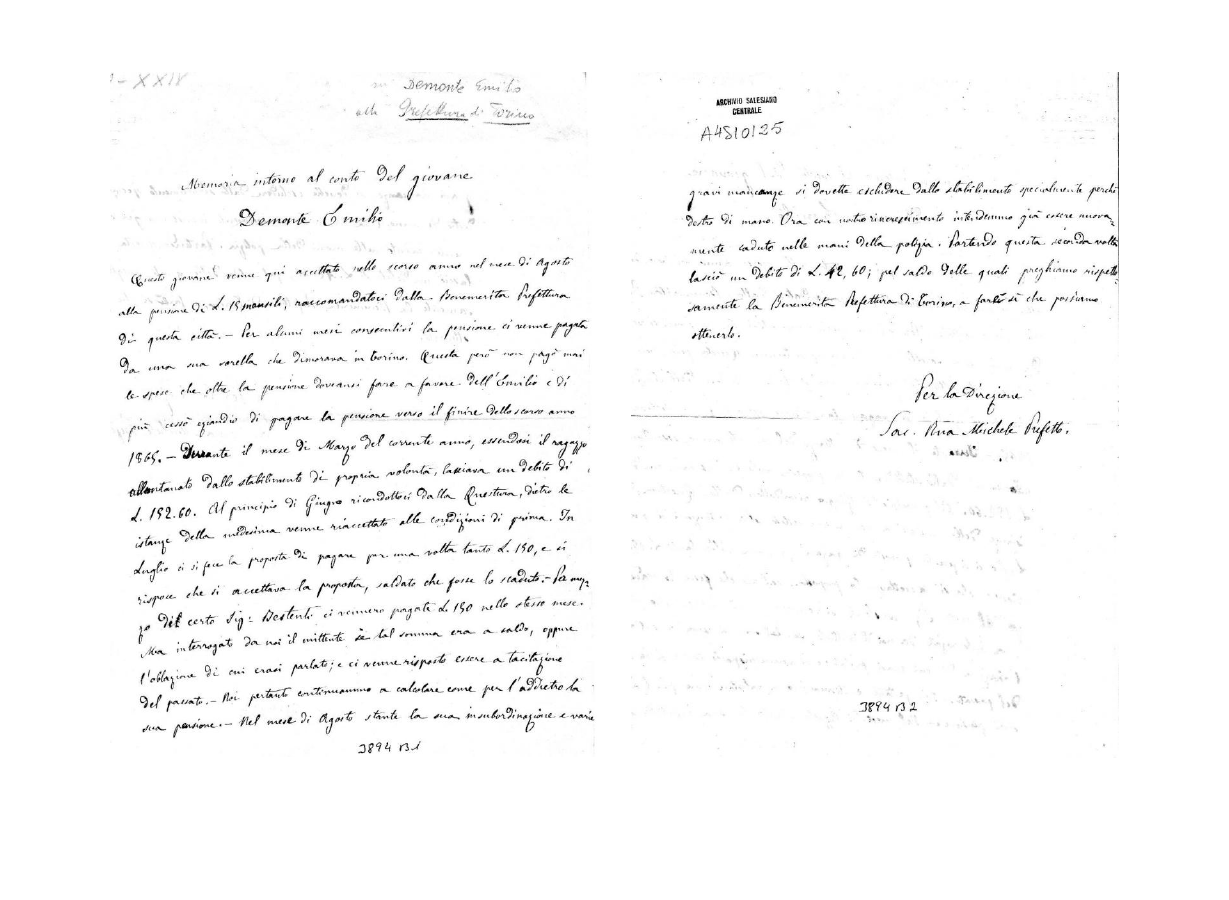 - XXIV
Demonte Emilio
alla Prefettura di Torino
Memoria intorno al conto del giovane
Demonte Emilio
Questo giovane venne qui accettato nello scorso anno nel mese di Agosto
alla pensione di L. 15 mensili, raccomandatoci dalla Benemerita Prefettura
di questa città. – Per alcuni mesi consecutivi la pensione ci venne pagata
da una sua sorella che dimorava in Torino. Questa però non pagò mai
le spese che oltre la pensione doveansi fare a favore dell'Emilio e di
più cessò eziandio di pagare la pensione verso il finire dello scorso anno
1865. – Durante il mese di Marzo del corrente anno, essendosi il ragazzo
allontanato dallo stabilimento di propria volontà, lasciava un debito di
L. 152.60. Al principio di Giugno ricondottoci dalla Questura, dietro le
istanze della medesima venne riaccettato alle condizioni di prima. In
Luglio ci si fece la proposta di pagare per una volta tanto L. 150, e si
rispose che si accettava la proposta, saldato che fosse lo scaduto. – Pa mez-
zo del certo Sig: Bestenti ci vennero pagate L 150 nello stesso mese.
Ma interrogato da noi il mittente se tal somma era a saldo, oppure
l'oblazione di cui erasi parlato; e ci venne risposto essere a tacitazione
del passato. – Noi pertanto continuammo a calcolare come per l'addietro la
sua pensione. – Nel mese di Agosto stante la sua insubordinazione e varie
3894 B1
ARCHIVIO SALESIANO
CENTRALE
A4810125
gravi mancanze si dovette escludere dallo stabilimento specialmente perchè
destro di mano. Ora con nostro rincrescimento intendemmo già essere nuova-
mente caduto nelle mani della polizia. Partendo questa seconda volta
lasciò un debito di L. 42,60; pel saldo delle quali preghiamo rispetto-
samente la Benemerita Prefettura di Torino, a far sì che possiamo
ottenerlo.
Per la Direzione
Sac. Rua Michele Prefetto.
3894 B2